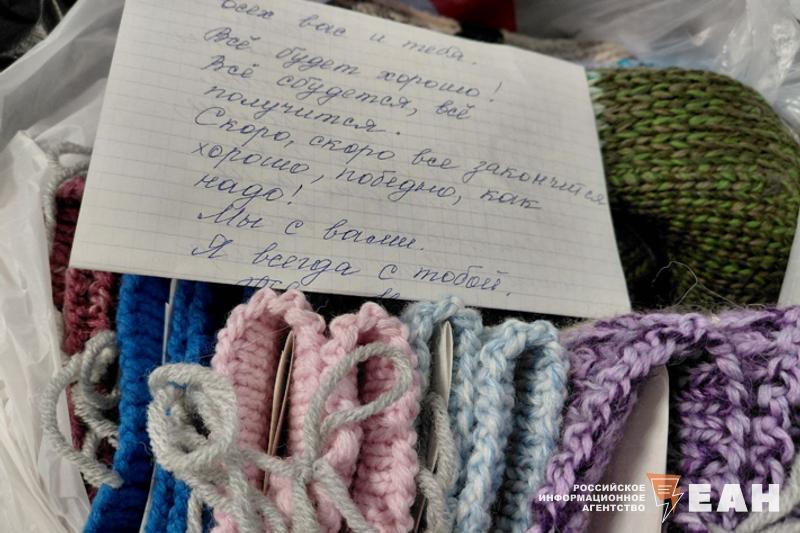 всех вас и тебя.
Всё будет хорошо!
Всё сбудется, всё
получится.
Скоро, скоро все закончится
хорошо, победно, как
надо!
Мы с вами.
Я всегда с тобой.
РОССИЙСКОЕ
ИНФОРМАЦИОННОЕ
АГЕНТСТВО
ЕАН